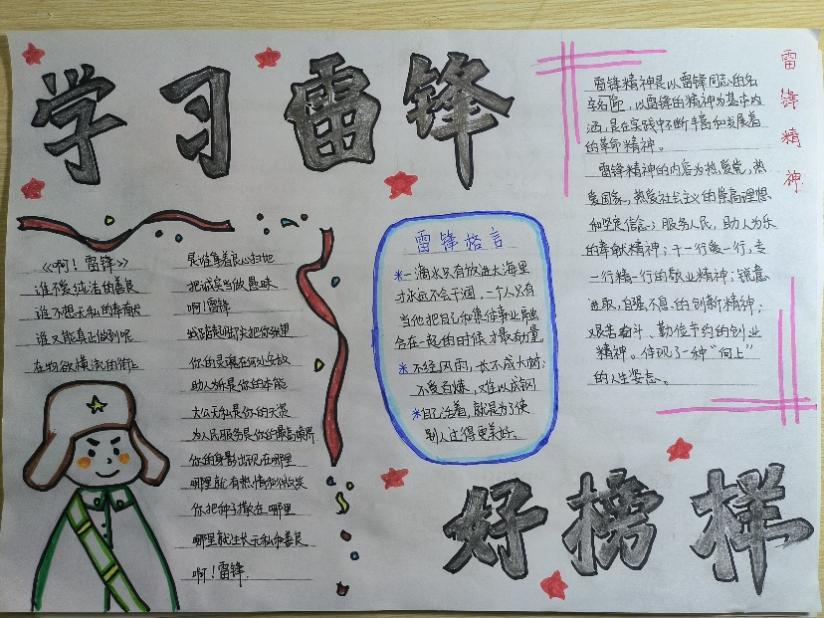 学习雷锋
《啊！雷锋》
谁不像纯洁的善良
谁不想无私的奉献
谁又能真正做到呢
在物欲横流的街上
是谁拿着良心扫地
把诚实当做愚昧
啊！雷锋
你的灵魂在何处安放
助人为乐是你的本能
大公无私是你的天资
为人民服务是你的最高境界
你的身影出现在哪里
哪里就有热情和微笑
你把种子撒在哪里
哪里就生长无私和善良
啊！雷锋
雷锋格言
*一滴水只有放进大海里
才永远不会干涸，一个人只有
当他把自己和集体事业融
合在一起的时候才最有力量
*不经风雨，长不成大树；
不受百炼，难以成钢
*自己活着，就是为了使
别人过得更美好。
雷锋精神
雷锋精神是以雷锋同志的名
字命名，以雷锋的精神为基本内
涵，是在实践中不断丰富和发展着
的革命精神。
雷锋精神的内容为热爱党，热
爱国家，热爱社会主义的崇高理想
和坚定信念；服务人民，助人为乐
的奉献精神；干一行爱一行，专
一行精一行的敬业精神；锐意
进取，自强不息的创新精神；
艰苦奋斗、勤俭节约的创业
精神。体现了一种“向上”
的人生姿态。
好榜样